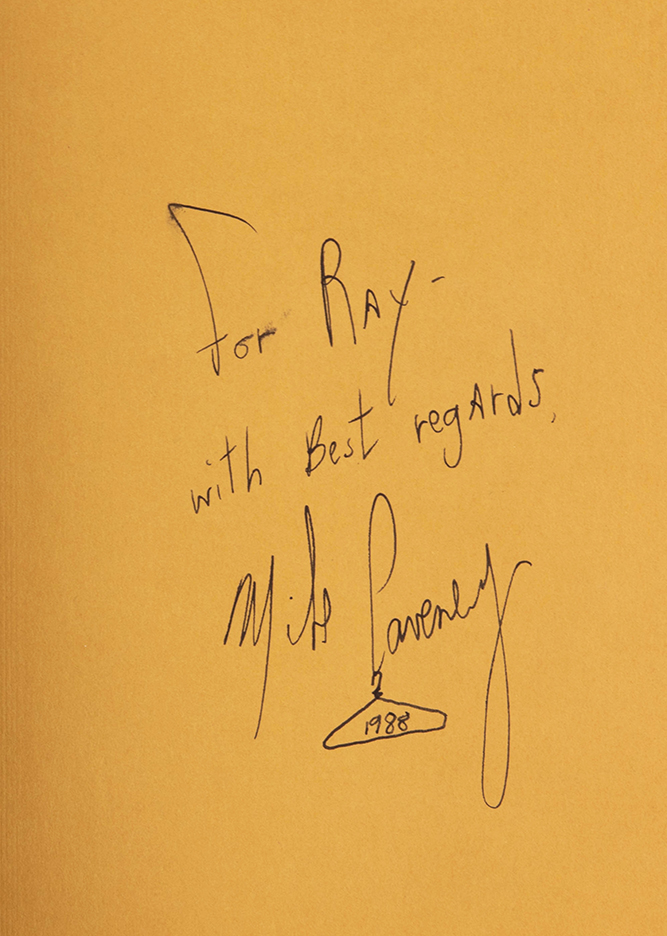 For Ray-
with Best regards,
Mike Caveney
1988